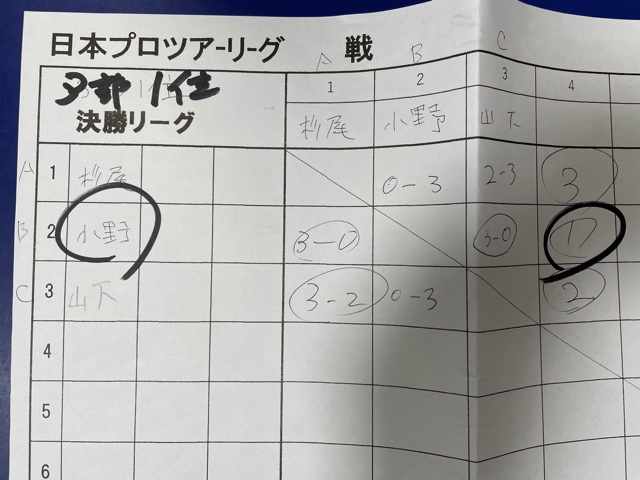 日本プロツアーリーグ 戦 A B C
夕部 1位
決勝リーグ
1 2 3 4
杉尾 小野 山下
A 1 杉尾 0-3 2-3 3
B 2 小野 3-0 3-0 1
C 3 山下 3-2 0-3 2
4
5
6